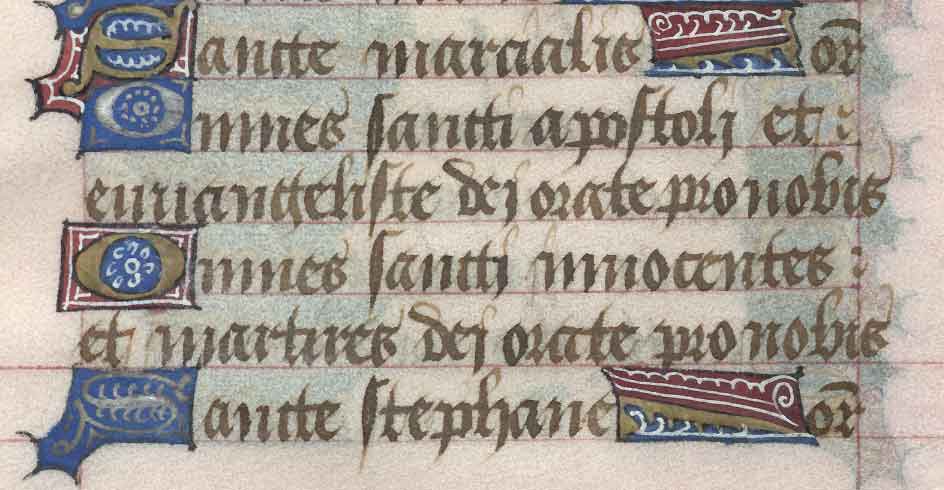 Sancte marcialis or̄
Omnes sancti apostoli et
euuangeliste dei orate pro nobis
Omnes sancti innocentes
et martires dei orate pro nobis
Sancte stephane or̄